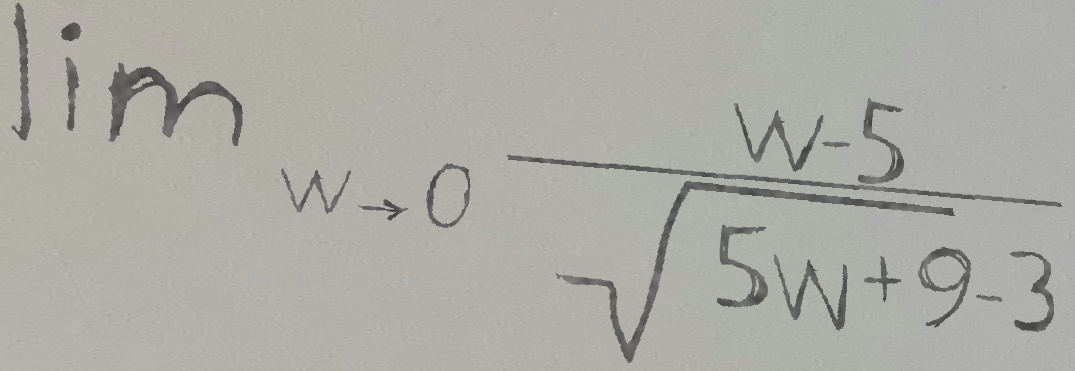 lim w→0 (w-5)/(√(5w+9)-3)